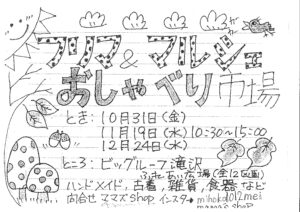 フリマ&マルシェ
おしゃべり市場
とき：10月31日(金)
11月19日(水) 10:30~15:00
12月24日(水)
ところ：ビッグルーフ滝沢
ふれあい広場(全12区画)
ハンドメイド, 古着, 雑貨, 食器 など
問合せ ママズshop インスタ→ mihoko1012.mei
mamas shop